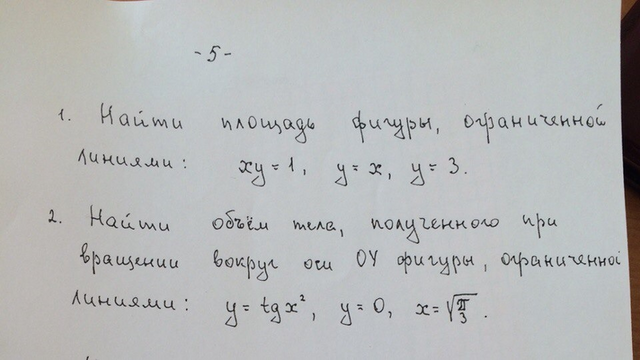 -5-
1. Найти площадь фигуры, ограниченной
линиями: xy=1, y=x, y=3.
2. Найти объём тела, полученного при
вращении вокруг оси OY фигуры, ограниченной
линиями: y=tgx², y=0, x=√π/3.